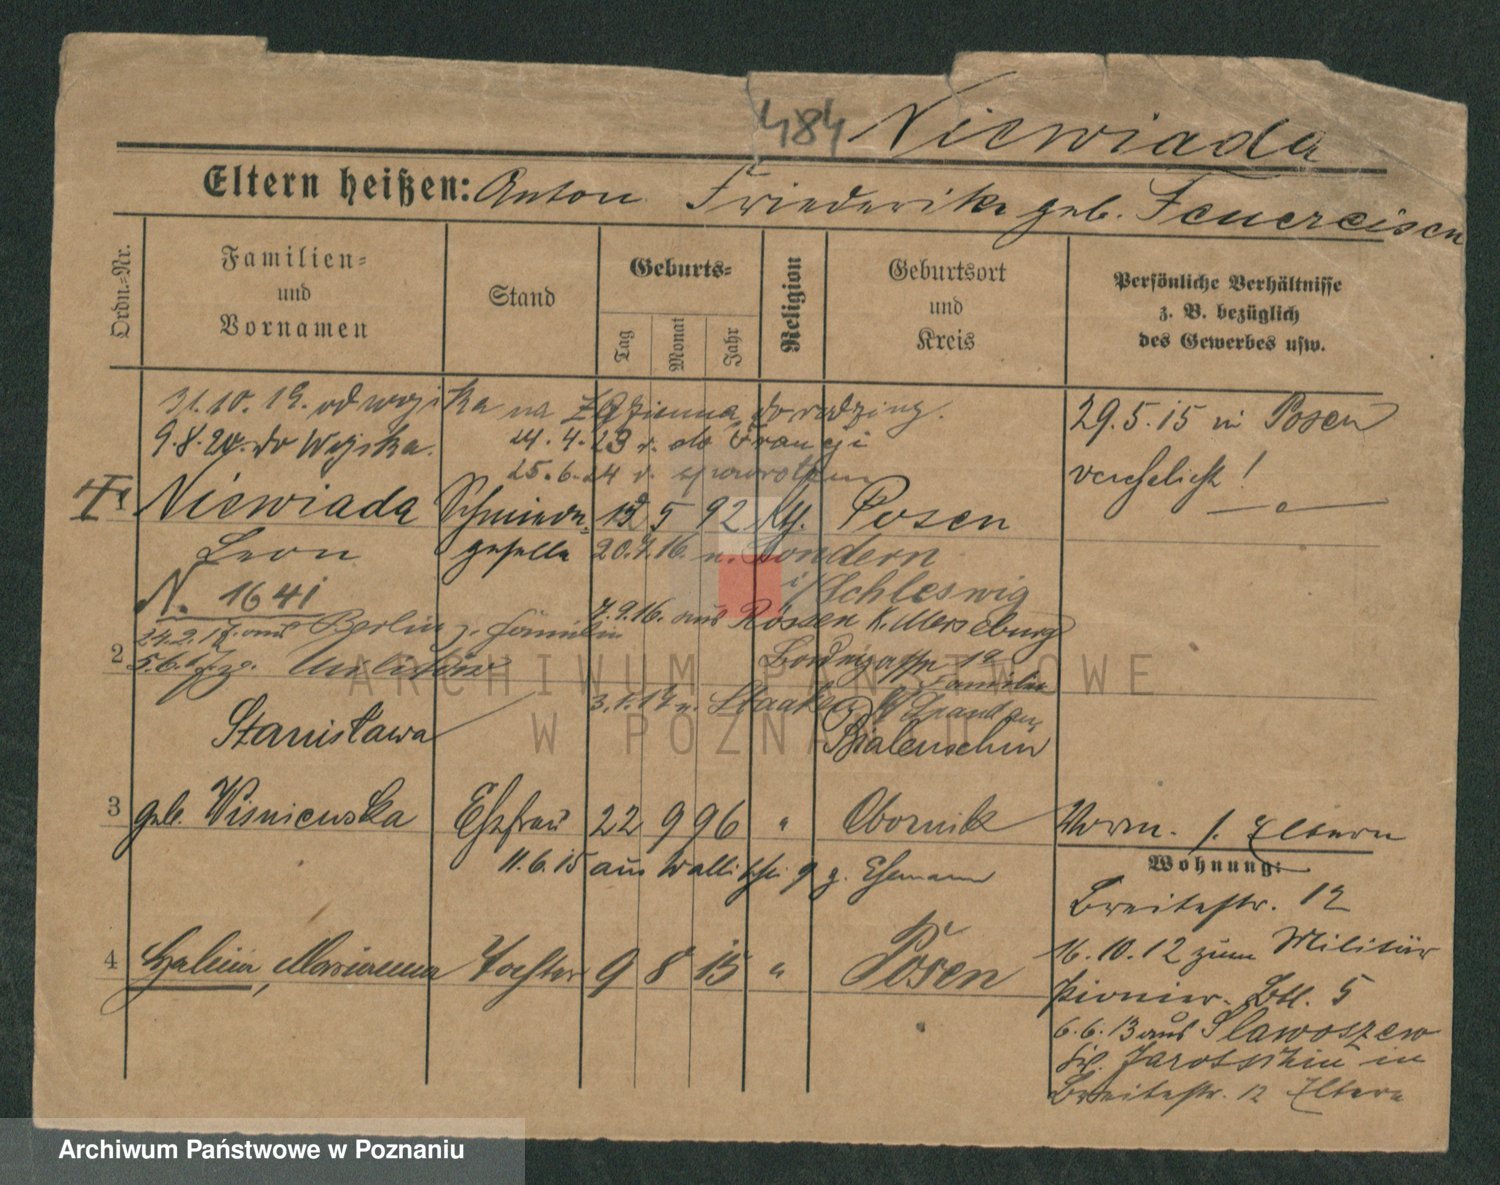 484 Niewiada
Eltern heißen: Anton Friederike geb. Feuereisen
Ordn.-Nr.
Familien-
und
Vornamen
Stand
Geburts-
Tag
Monat
Jahr
Religion
Geburtsort
und
Kreis
Persönliche Verhältnisse
z. B. bezüglich
des Gewerbes usw.
31.10.19. od wojska na do rodziny.
9.8.20. do Wojska. 24.4.23 r. do Francji
25.6.24 r. z powrotem
29.5.15 in Posen
verehelicht!
Niewiada Schmiede- 12 5 92 kth. Posen
Leon geselle 20.7.16. n. Tondern
i/Schleswig
N. 1641
7.9.16. aus Rössen K. Merseburg
24.2.17. aus Berlin z. Familie
2
5.6.17
Familie
3.1.17 n. Staaken
Stanisława
3 geb. Wisniewska Ehefrau 22 9 96 " Obornik
11.6.15 aus z. Ehemann
Worm. s. Eltern
Wohnung:
Breitestr. 12
4 Halina, Marianna Tochter 9 8 15 " Posen
16.10.12 zum Militär
Pionier. Btl. 5
6.6.13 aus Slawoszew
Jarotschin in
Breitestr. 12 Eltern
ARCHIWUM PAŃSTWOWE
W POZNANIU
Archiwum Państwowe w Poznaniu